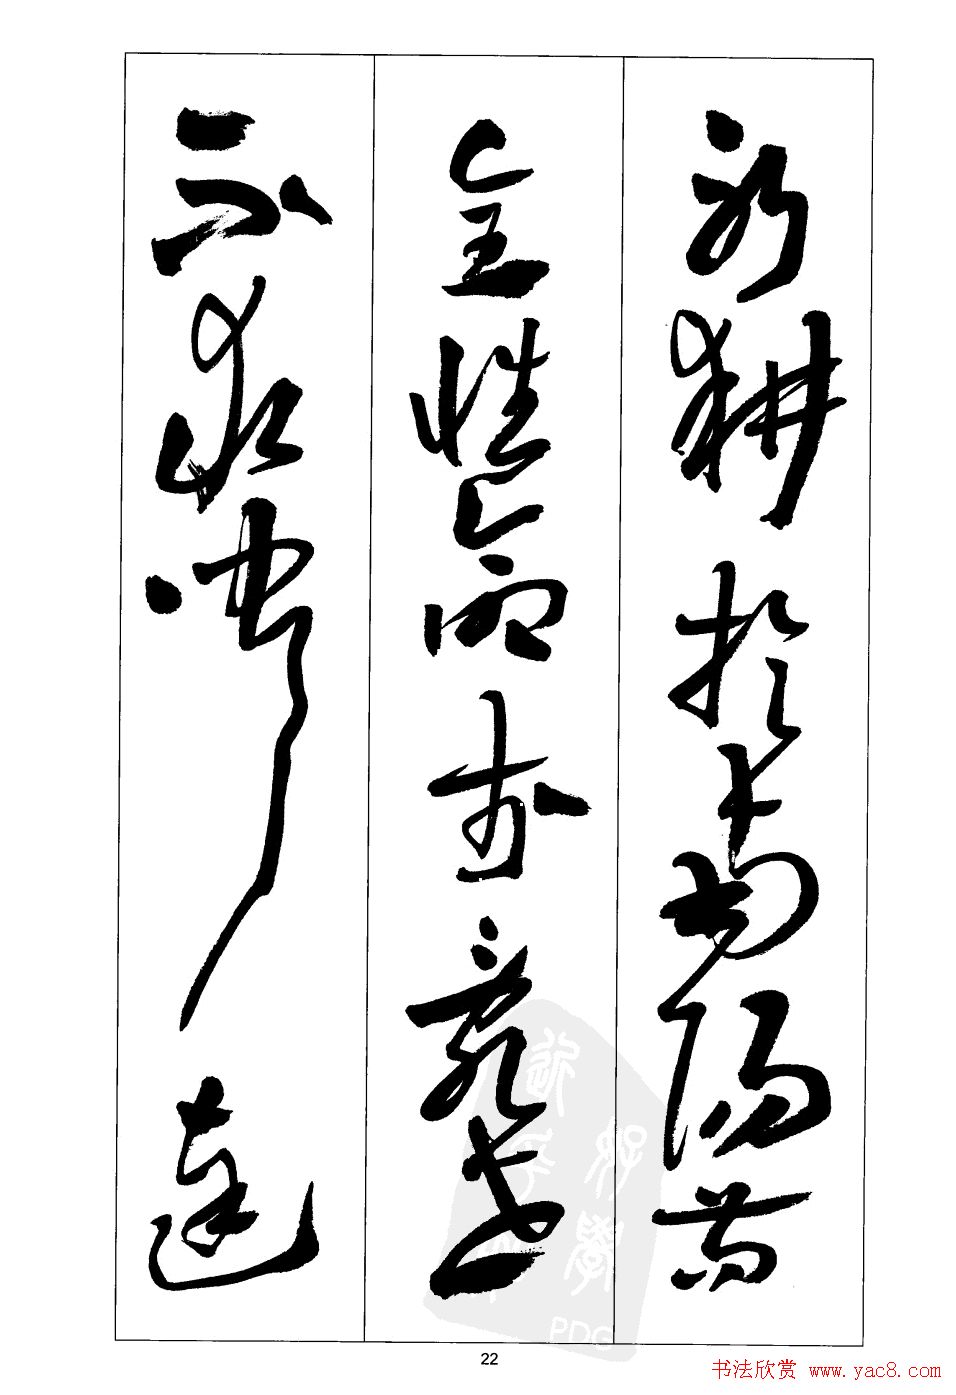 躬耕於南陽苟
全性命於亂世
不求聞達
22
书法欣赏 www.yac8.com
PDG